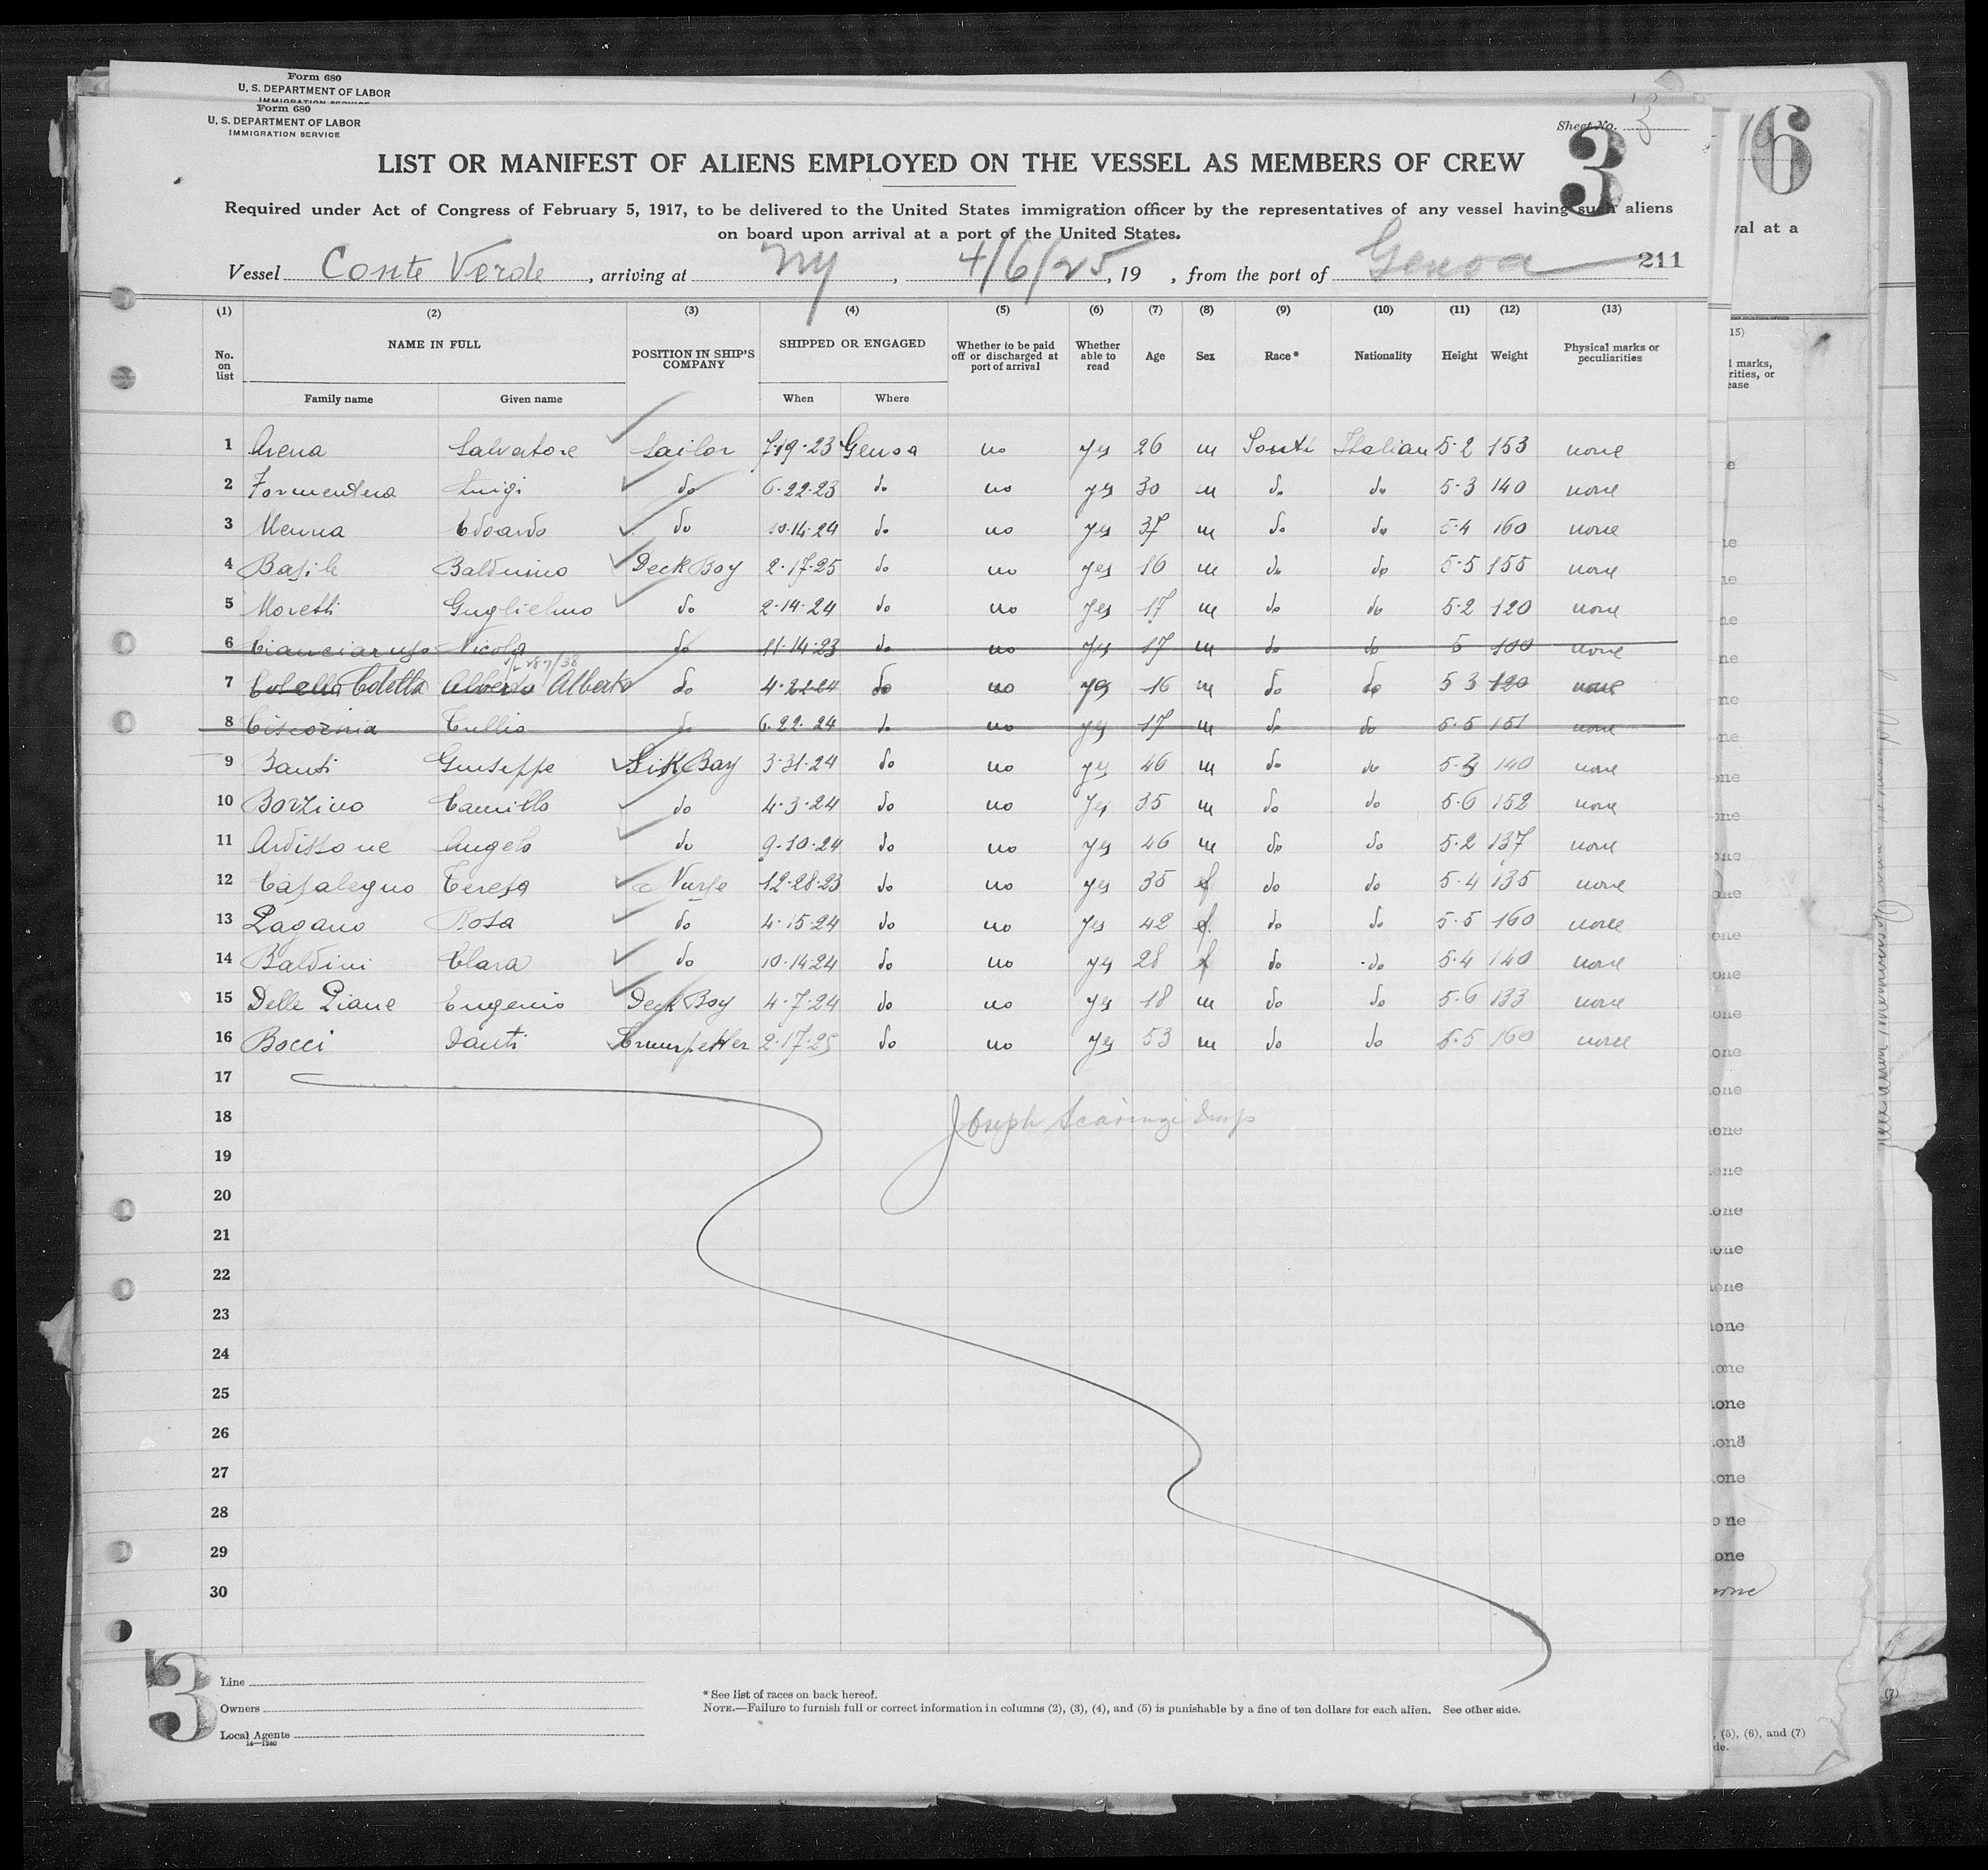 Form 680
U. S. DEPARTMENT OF LABOR
IMMIGRATION SERVICE
Form 680
U. S. DEPARTMENT OF LABOR
IMMIGRATION SERVICE
Sheet No. 3
3
6
LIST OR MANIFEST OF ALIENS EMPLOYED ON THE VESSEL AS MEMBERS OF CREW
Required under Act of Congress of February 5, 1917, to be delivered to the United States immigration officer by the representatives of any vessel having such aliens
on board upon arrival at a port of the United States.
val at a
Vessel Conte Verde, arriving at NY, 4/6/25, 19 , from the port of Genoa 211
(1) (2) (3) (4) (5) (6) (7) (8) (9) (10) (11) (12) (13)
No. on list NAME IN FULL POSITION IN SHIP'S COMPANY SHIPPED OR ENGAGED Whether to be paid off or discharged at port of arrival Whether able to read Age Sex Race* Nationality Height Weight Physical marks or peculiarities
Family name Given name When Where
1 Arena Salvatore Sailor 7-19-23 Genoa no yes 26 m South Italian 5-2 153 none
2 Formentera Luigi do 6-22-23 do no yes 30 m do do 5-3 140 none
3 Menna Edoardo do 10-14-24 do no yes 37 m do do 5-4 160 none
4 Basile Balduino Deck Boy 2-17-25 do no yes 16 m do do 5-5 155 none
5 Moretti Guglielmo do 2-14-24 do no yes 17 m do do 5-2 120 none
6 Cianciaruso Nicola do 11-14-23 do no yes 17 m do do 5 100 none
7 Colella Coletta Alberto Alberto do 4-22-24 do no yes 16 m do do 5 3 120 none
8 Ciscornia Tullio do 6-22-24 do no yes 17 m do do 5-5 151 none
9 Banti Giuseppe Sik Bay 3-31-24 do no yes 46 m do do 5-3 140 none
10 Borzino Camillo do 4-3-24 do no yes 35 m do do 5-6 152 none
11 Ardissone Angelo do 9-10-24 do no yes 46 m do do 5-2 137 none
12 Casalegno Teresa Nurse 12-28-23 do no yes 35 f do do 5-4 135 none
13 Pagano Rosa do 4-15-24 do no yes 42 f do do 5-5 160 none
14 Baldini Clara do 10-14-24 do no yes 28 f do do 5-4 140 none
15 Delle Piane Eugenio Deck Boy 4-7-24 do no yes 18 m do do 5-6 133 none
16 Bocci Danti Trumpetter 2-17-25 do no yes 53 m do do 5-5 160 none
17
18 Joseph Scaringi Insp
19
20
21
22
23
24
25
26
27
28
29
30
3
Line
Owners
Local Agents
14—1240
* See list of races on back hereof.
NOTE.—Failure to furnish full or correct information in columns (2), (3), (4), and (5) is punishable by a fine of ten dollars for each alien. See other side.
, (5), (6), and (7)
de.